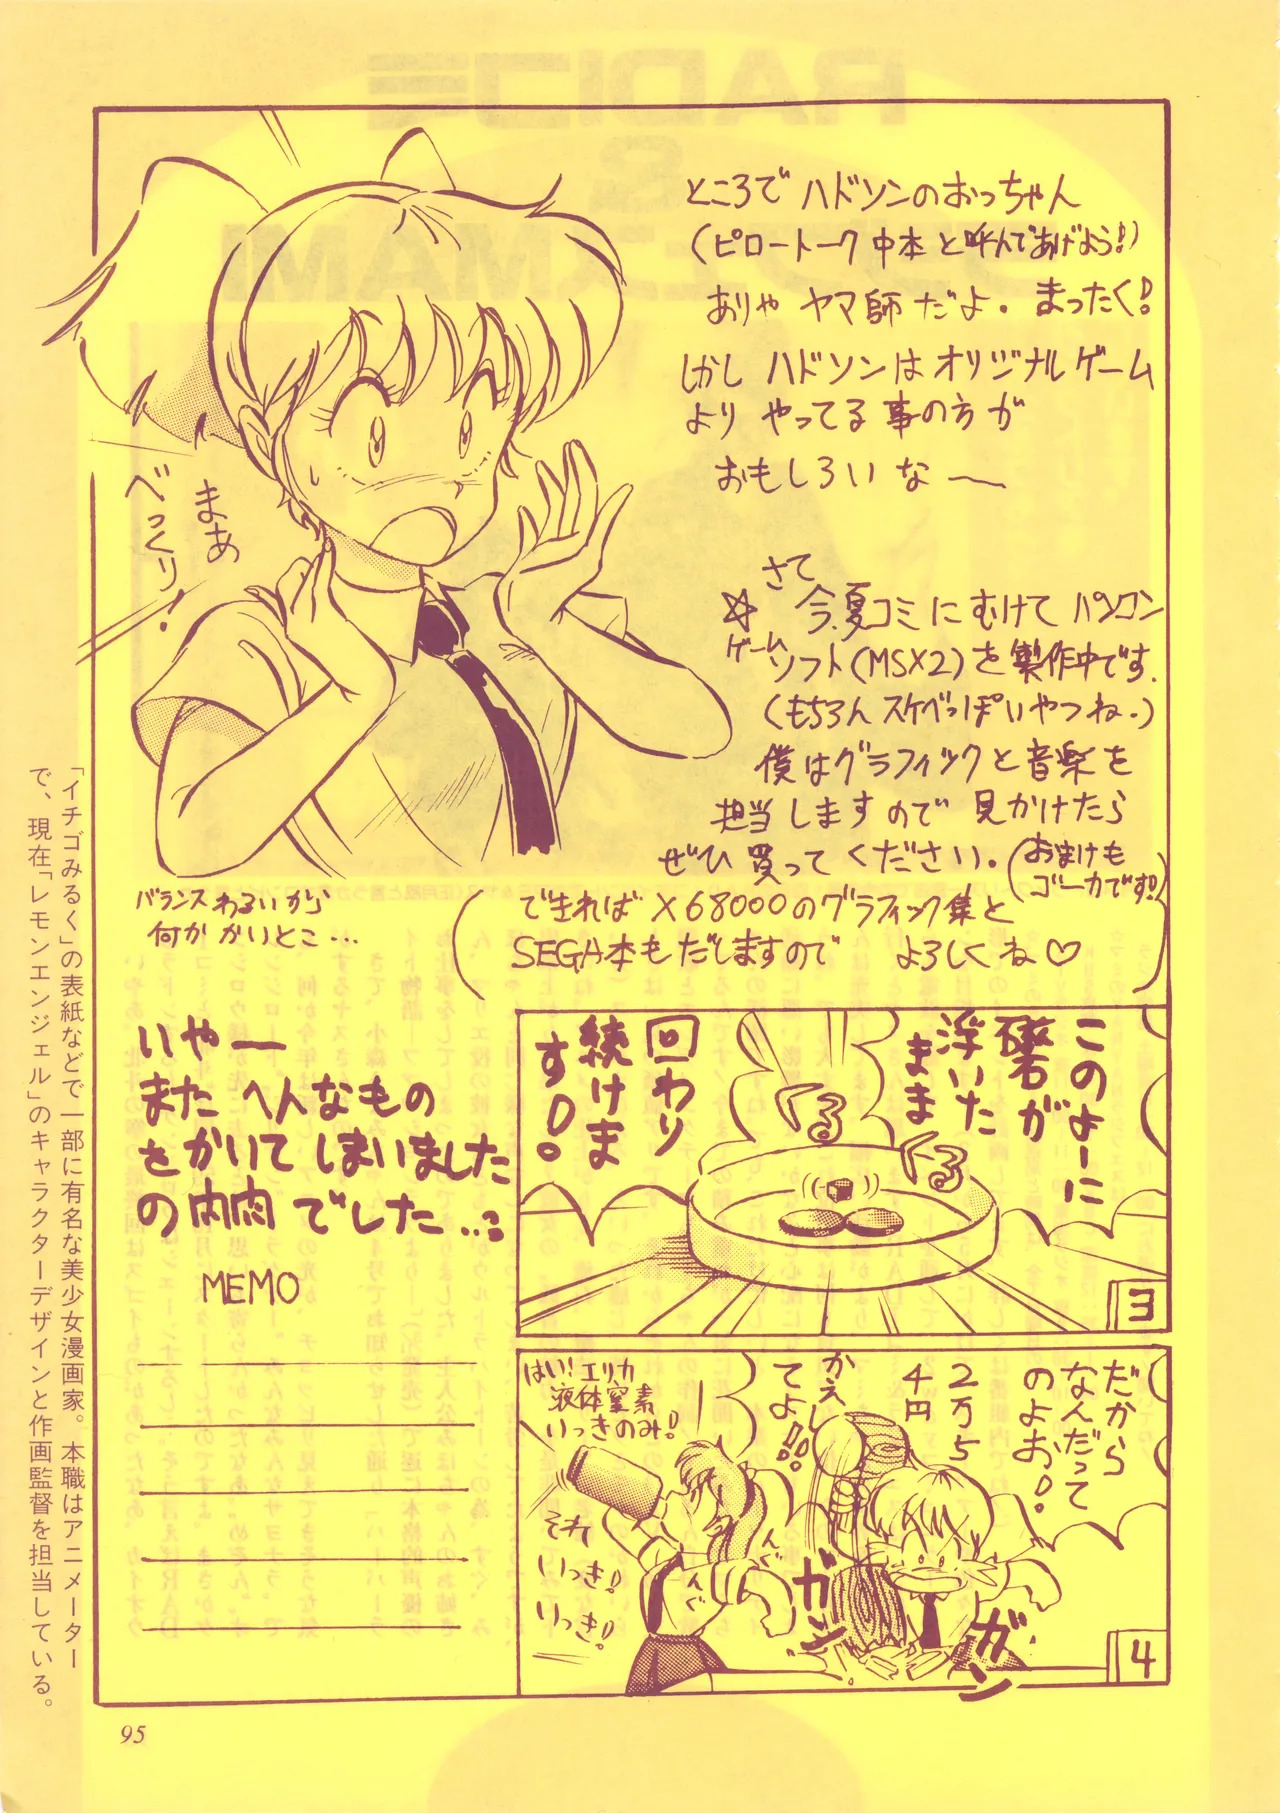 ところで ハドソンのおっちゃん
(ピロートーク中本と呼んであげよう!)
ありゃ ヤマ師だよ. まったく!
しかし ハドソンはオリジナルゲーム
より やってる事の方が
おもしろいなー
まあ
べっくり!
さて
☆ 今.夏コミにむけて パソコン
ゲーム ソフト(MSX2)を製作中です.
(もちろん スケベっぽいやつね.)
僕はグラフィックと音楽を
担当しますので 見かけたら
ぜひ 買ってください. (おまけも
ゴーカです!)
(できれば X68000のグラフィック集と
SEGA本もだしますので よろしくね♡)
バランスわるいから
何か かいとこ...
いやー
また へんなもの
をかいて しまいました
の内 でした...
MEMO
このよーに
磁石が
浮いた
まま
回わり
続けま
す!
ぐる
ぐる
3
だから
なんだって
のよお!
2万5
4円
かえし
てよ!!
はい!エリカ
液体窒素
いっきのみ!
それ
いっき!
いっき!
んぐ
んぐ
ガン
ガン
4
「イチゴみるく」の表紙などで一部に有名な美少女漫画家。本職はアニメーター
で、現在「レモンエンジェル」のキャラクターデザインと作画監督を担当している。
95